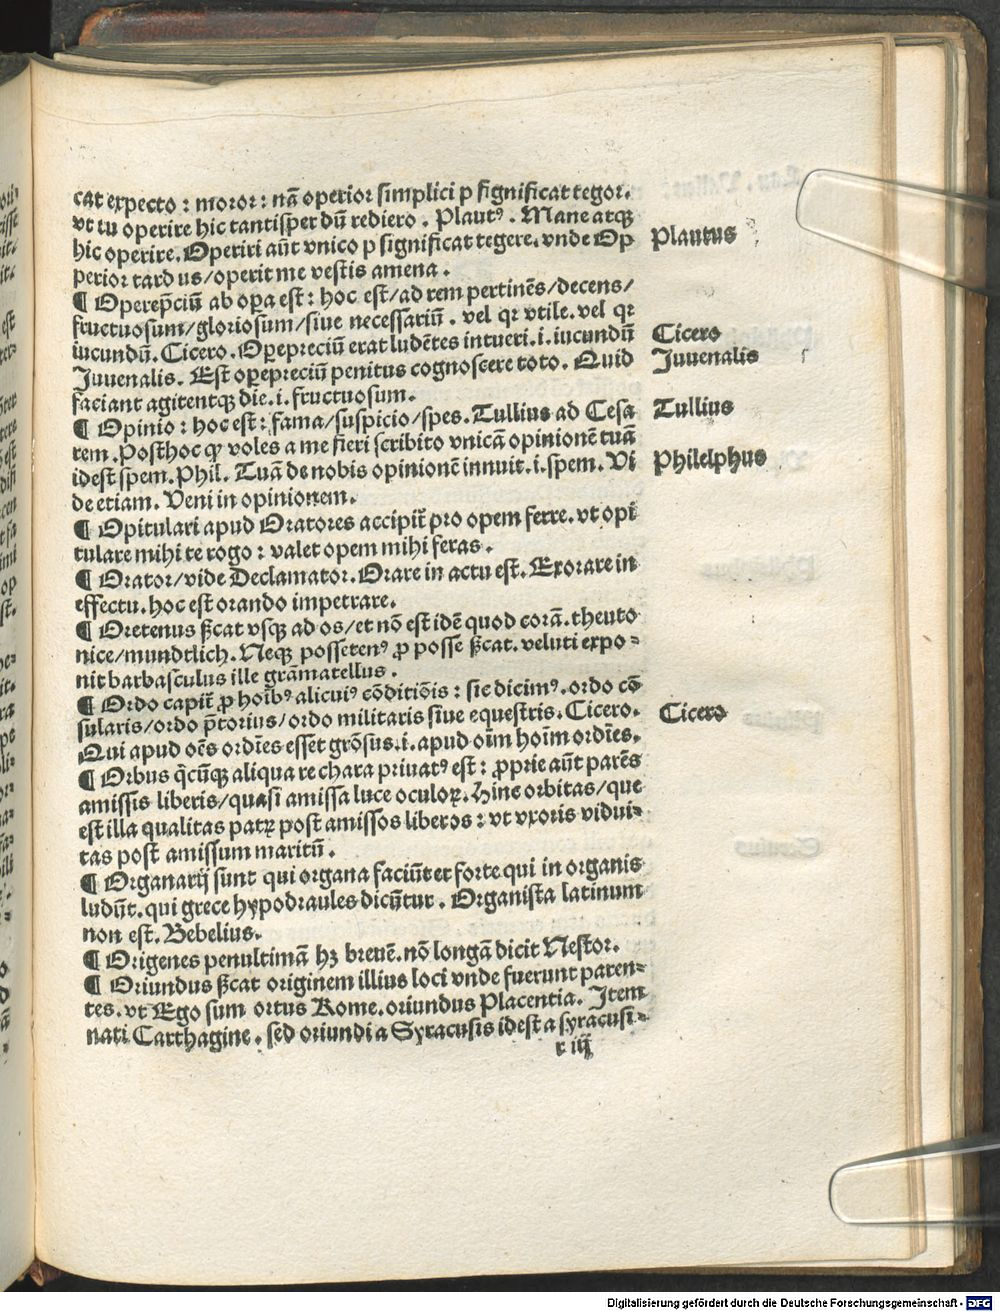 cat expecto : moror : nā operior simplici p significat tegor.
vt tu operire hic tantisper dū rediero . Plautꝰ . Mane atqꝫ
hic operire. Operiri aūt vnico p significat tegere. vnde Op
perior tardus/operit me vestis amena .
¶ Operep̄ciū ab oꝑa est : hoc est/ad rem pertinēs/decens/
fructuosum/gloriosum/siue necessariū . vel qꝛ vtile. vel qꝛ
iucundū. Cicero. Oꝑepreciū erat ludētes intueri. i. iucundū
Juuenalis. Est oꝑepreciū penitus cognoscere toto. Quid
faciant agitentqꝫ die. i. fructuosum.
¶ Opinio : hoc est : fama/suspicio/spes. Tullius ad Cesa
rem. Posthoc qꝙ voles a me fieri scribito vnicā opinionē tuā
idest spem. Phil. Tuā de nobis opinionē innuit. i. spem. Vi
de etiam. Veni in opinionem.
¶ Opitulari apud Oratores accipit̄ pro opem ferre. vt opi
tulare mihi te rogo : valet opem mihi feras .
¶ Orator/vide Declamator. Orare in actu est. Exorare in
effectu. hoc est orando impetrare.
¶ Oretenus ß̄cat vsqꝫ ad os/et nō est idē quod corā. theuto
nice/mundtlich. Neqꝫ possetenꝰ ꝓ posse ß̄cat. veluti expo-
nit barbasculus ille grāmatellus .
¶ Ordo capit̄ ꝓ hoīb⁹ alicuiꝰ cōditiōis : sic dicimꝰ. ordo cō
sularis/ordo p̄torius/ordo militaris siue equestris. Cicero.
Qui apud oēs ordīes esset grōsus. i. apud oīm hoīm ordīes.
¶ Orbus q̄cūqꝫ aliqua re chara priuatꝰ est : ꝓprie aūt parēs
amissis liberis/quasi amissa luce oculoꝝ. Hinc orbitas/que
est illa qualitas patꝝ post amissos liberos : vt vxoris vidui-
tas post amissum maritū .
¶ Organarij sunt qui organa faciūt et forte qui in organis
ludūt. qui grece hypodraules dicūtur . Organista latinum
non est. Bebelius.
¶ Origenes penultimā hꝫ breuē. nō longā dicit Nestor.
¶ Oriundus ß̄cat originem illius loci vnde fuerunt paren-
tes. vt Ego sum ortus Rome. oriundus Placentia. Item
nati Carthagine . sed oriundi a Syracusis idest a syracusi-
r iij
Plautus
Cicero
Juuenalis
Tullius
Philelphus
Cicero
Digitalisierung gefördert durch die Deutsche Forschungsgemeinschaft - DFG